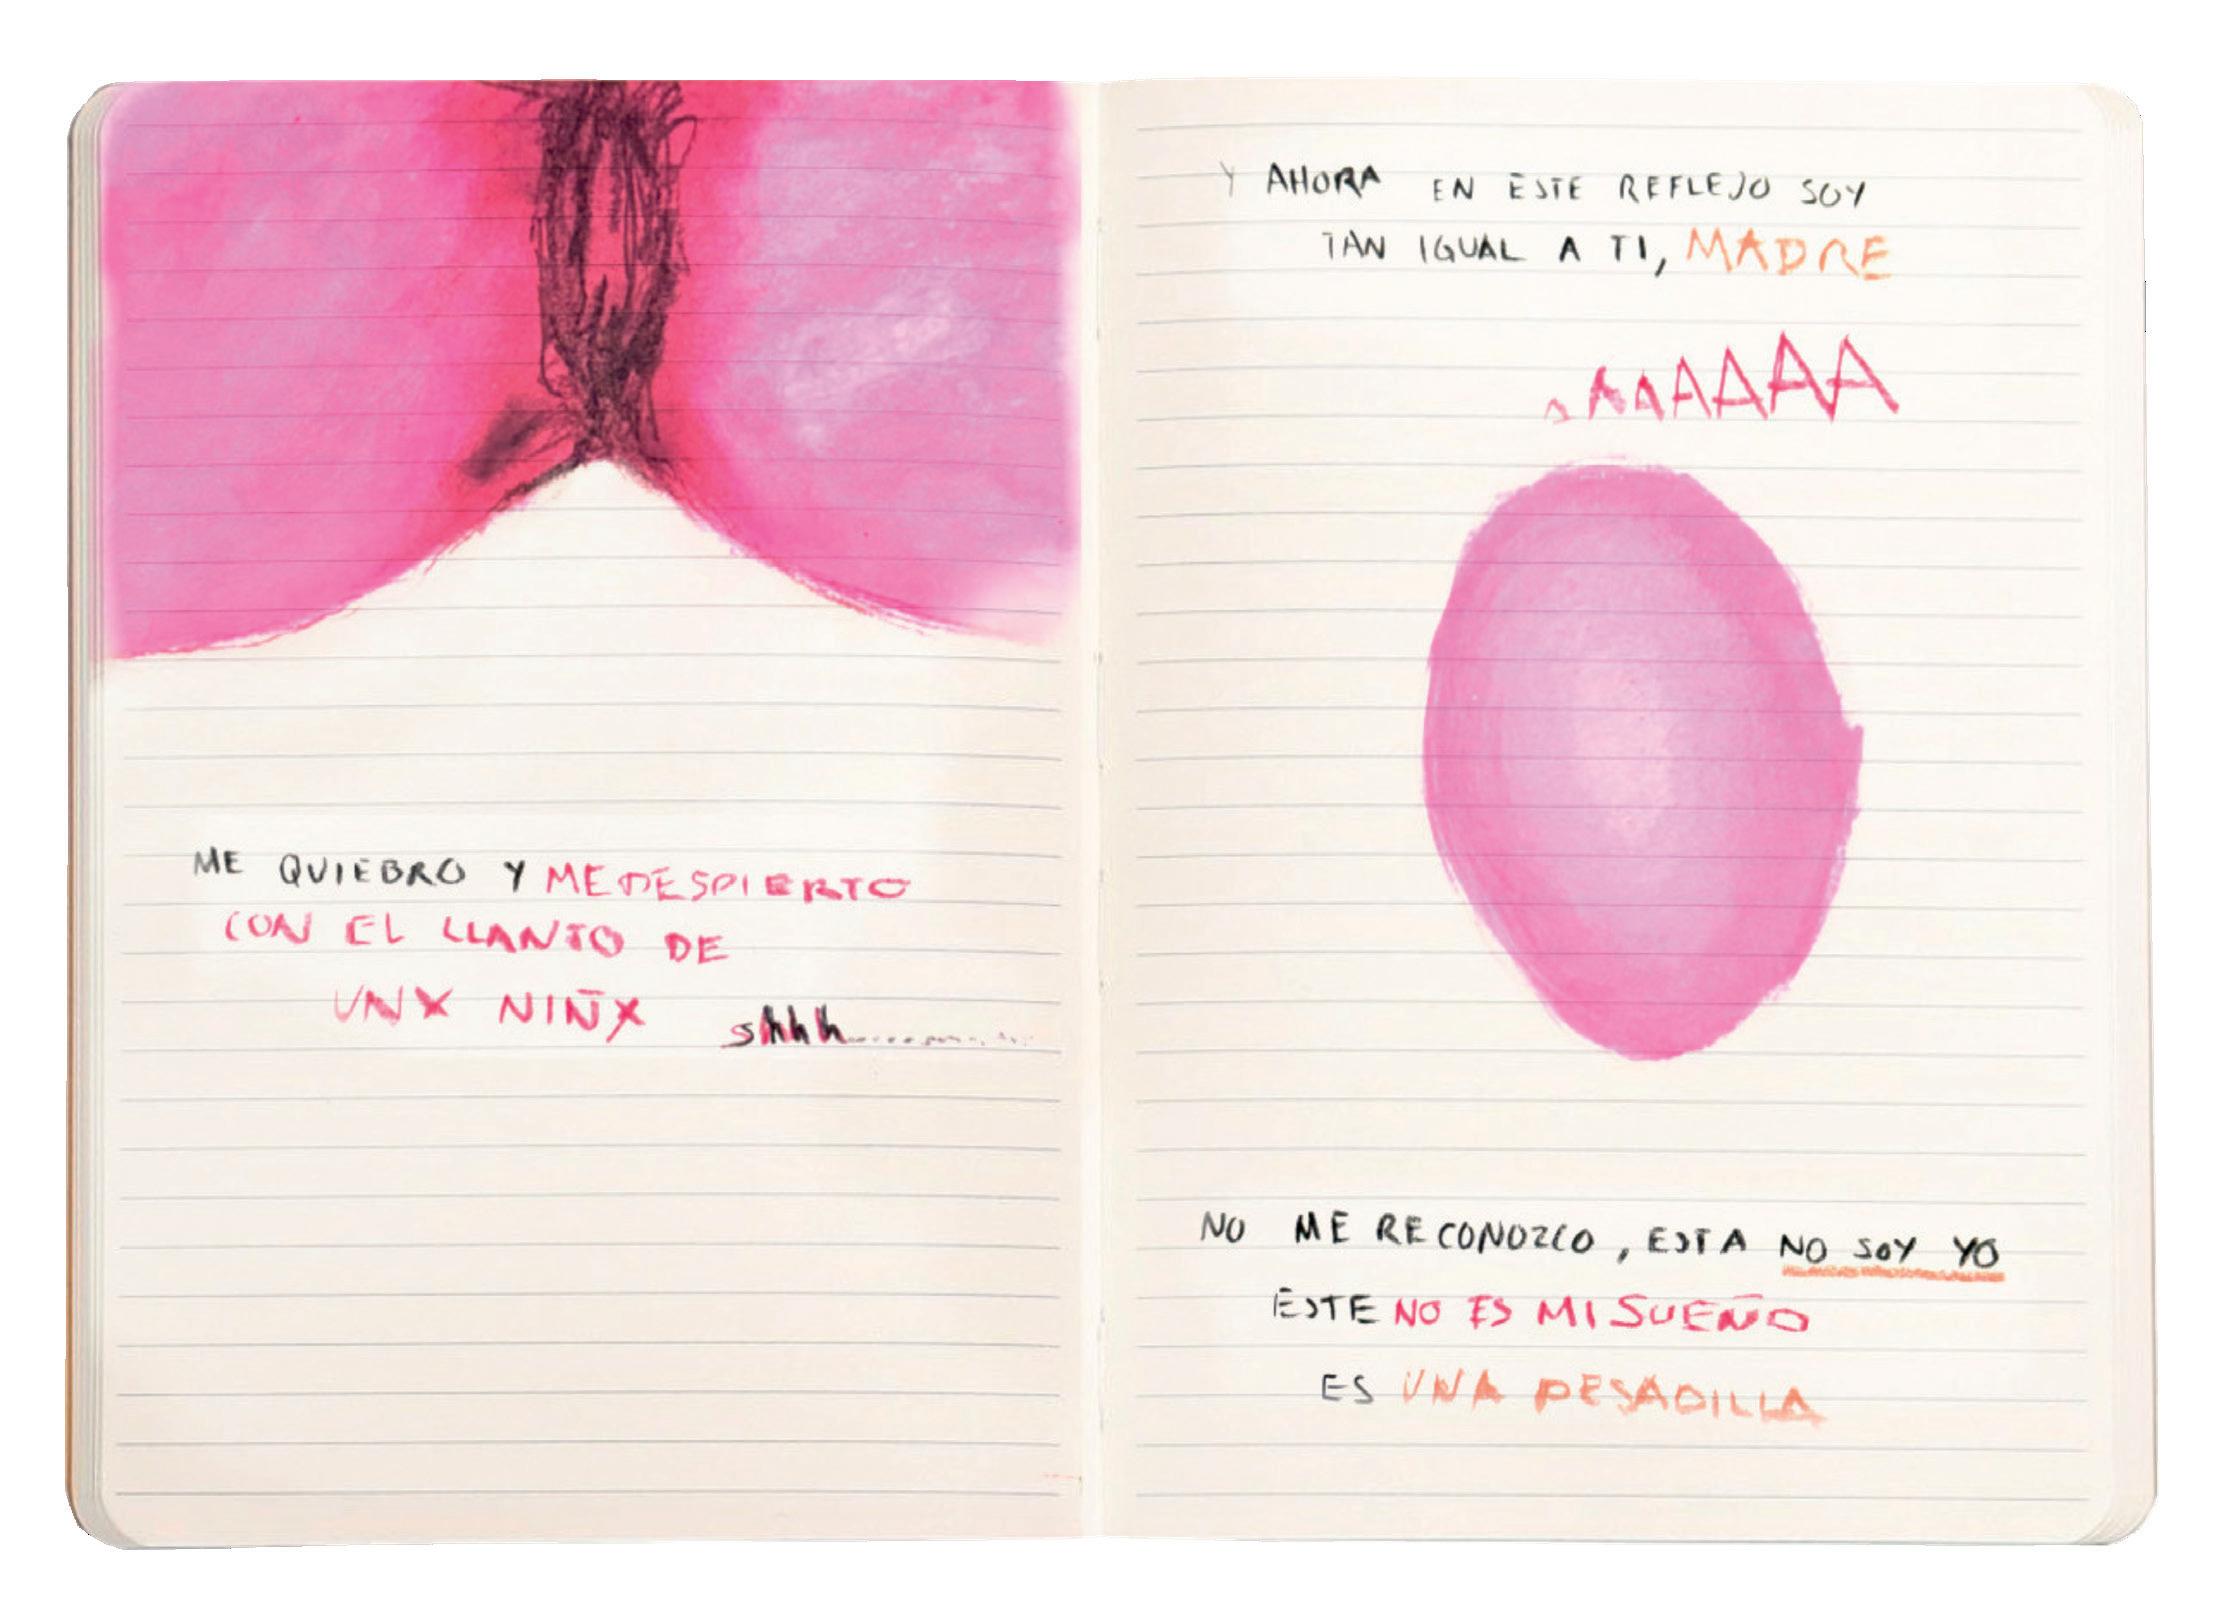 ME QUIEBRO Y ME DESPIERTO
CON EL LLANTO DE
UNX NIÑX shhh..............
Y AHORA EN ESTE REFLEJO SOY
TAN IGUAL A TI, MADRE
AAAAAAAA
NO ME RECONOZCO, ESTA NO SOY YO
ESTE NO ES MI SUEÑO
ES UNA PESADILLA